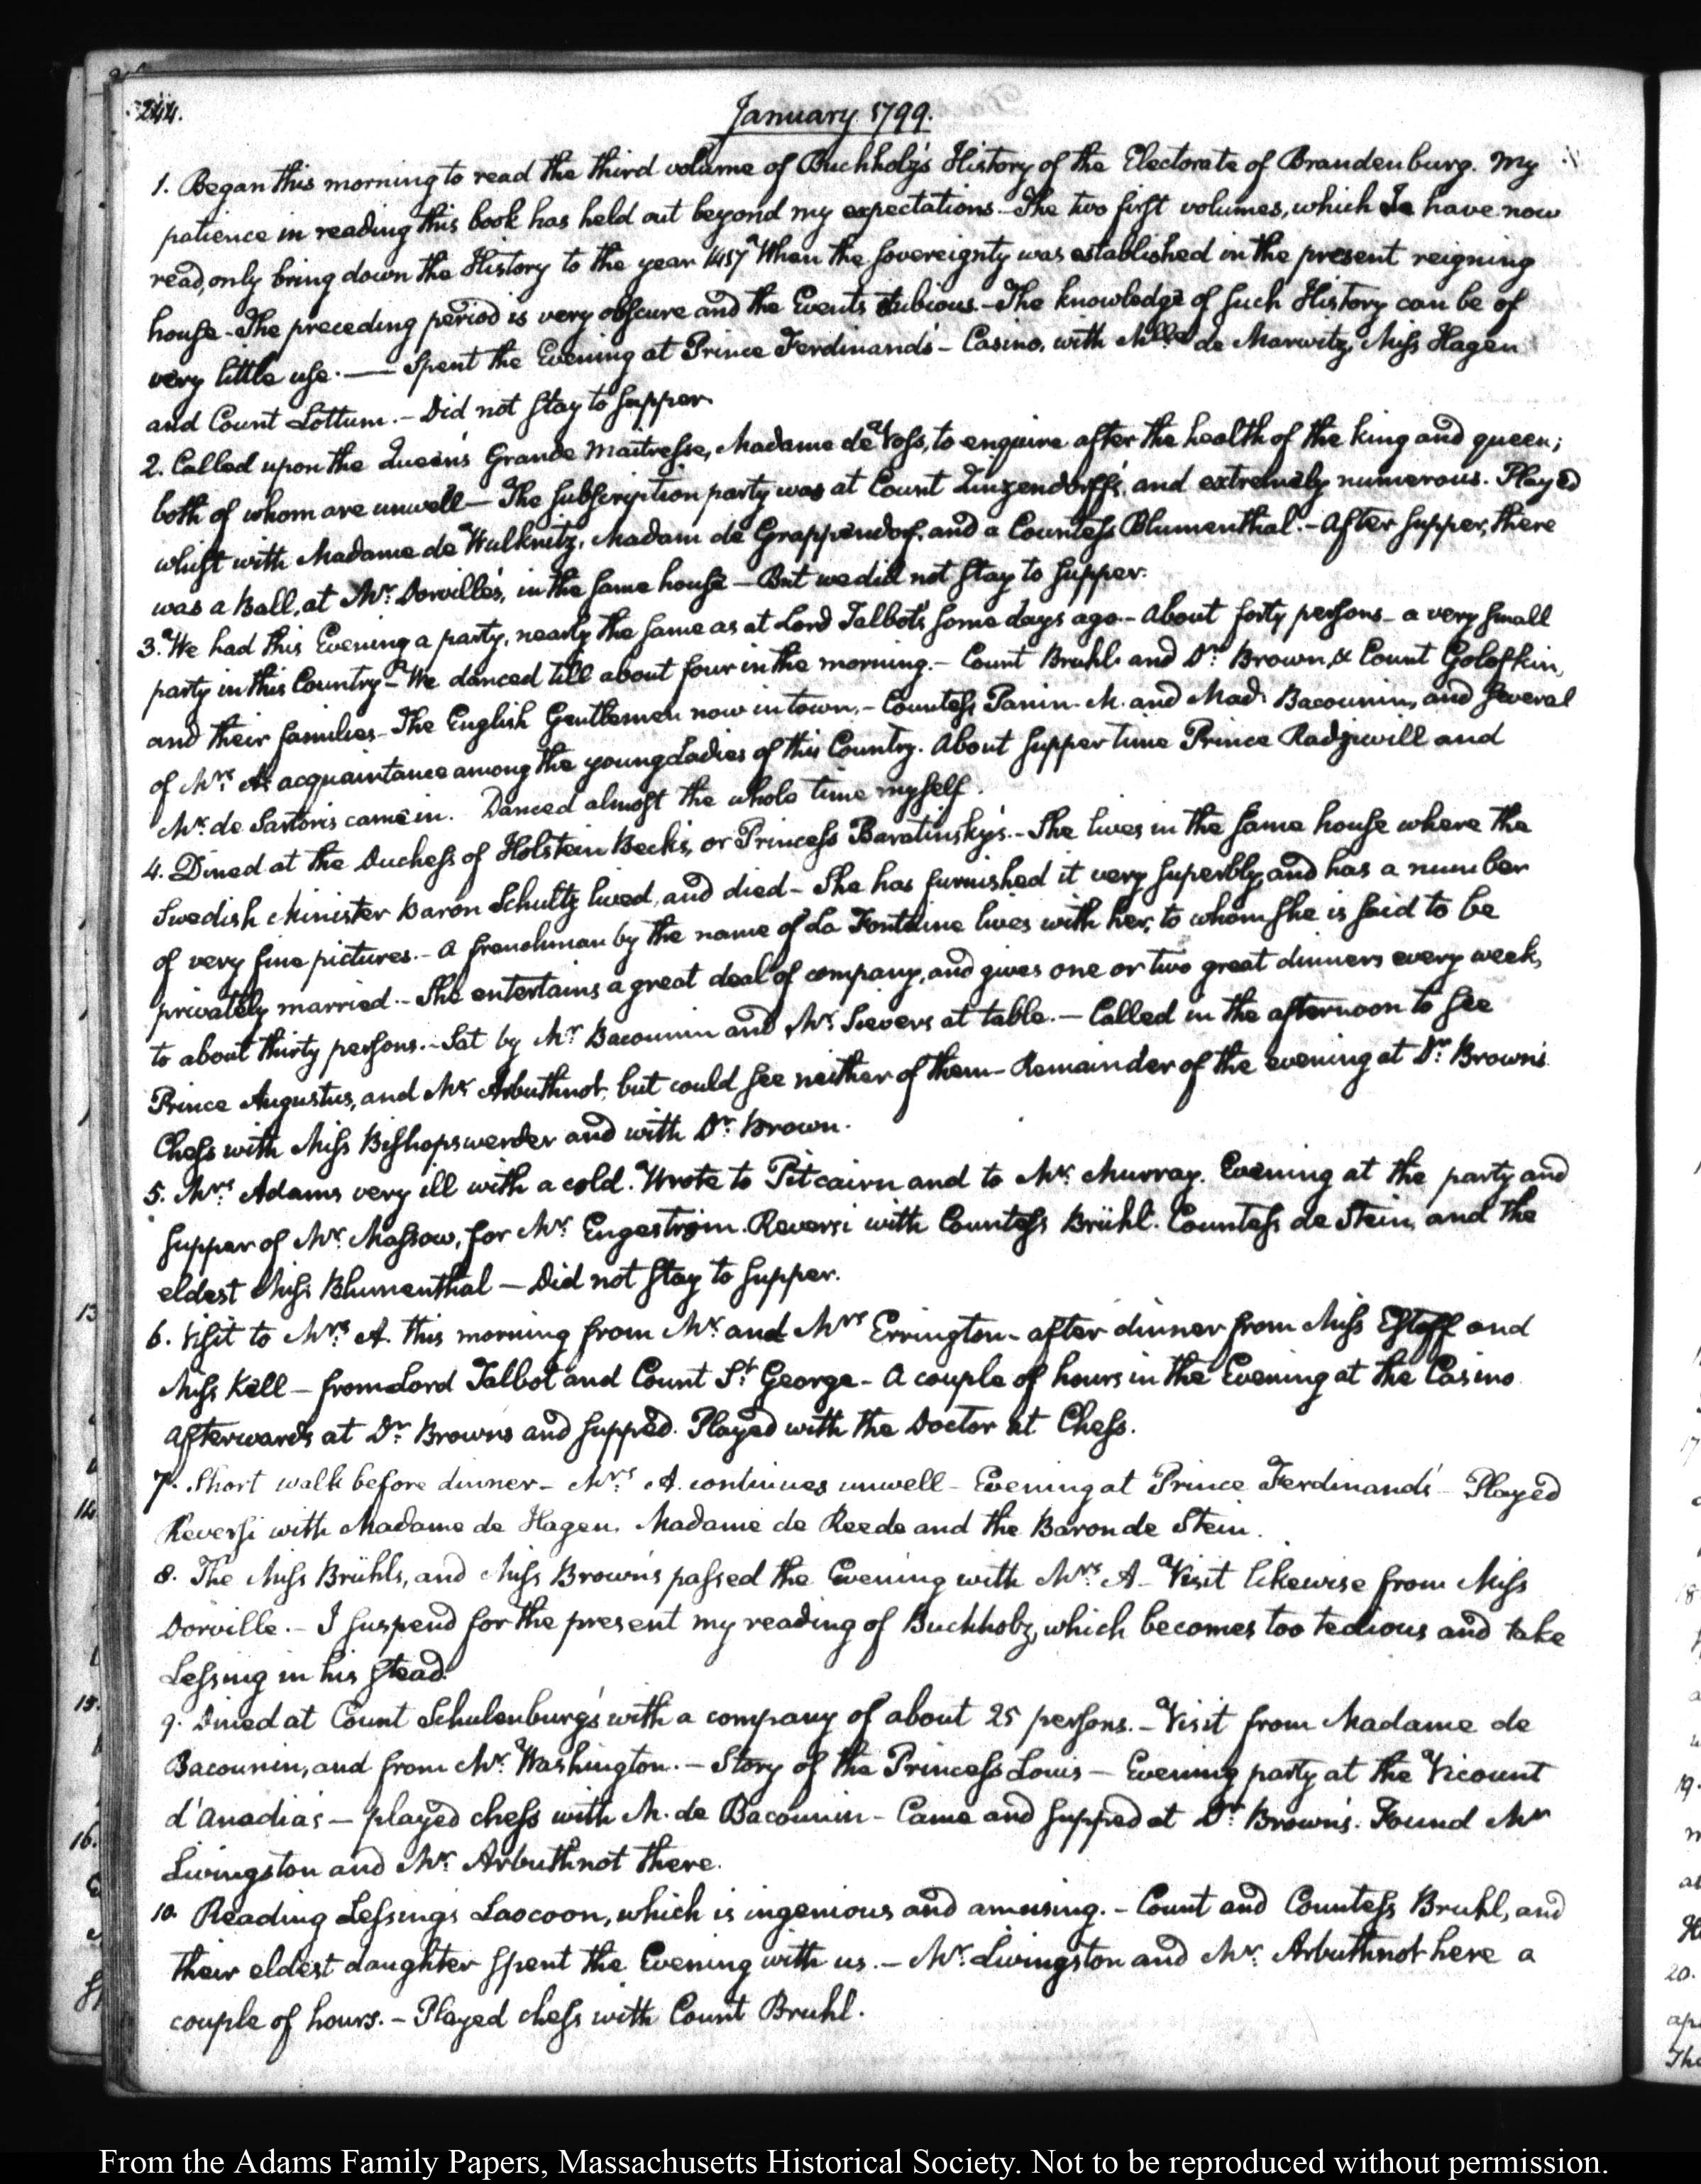 244.
January 1799.
1. Began this morning to read the third volume of Buchholz's History of the Electorate of Brandenburg. My
patience in reading this book has held out beyond my expectations. The two first volumes, which I have now
read, only bring down the History to the year 1417 When the sovereignty was established in the present reigning
house. The preceding period is very obscure and the Events dubious. The knowledge of such History can be of
very little use. — Spent the Evening at Prince Ferdinand's - Casino, with Mlle de Marwitz, Miss Hagen
and Count Lottum. - Did not stay to supper.
2. Called upon the Queen's Grande Maitresse, Madame de Voss, to enquire after the health of the king and queen;
both of whom are unwell — The subscription party was at Count Zinzendorff's, and extremely numerous. Played
whist with Madame de Wulknitz, Madam de Grappendorf, and a Countess Blumenthal. - After supper, there
was a Ball, at Mr. Dorville's, in the same house — But we did not stay to supper.
3. We had this Evening a party, nearly the same as at Lord Talbot's some days ago - About forty persons - a very small
party in this Country - We danced till about four in the morning. - Count Bruhl and Dr. Brown, & Count Golofkin,
and their families - The English Gentlemen now in town, - Countess Panin - M. and Mad. Bacounin, and several
of Mrs. A's acquaintance among the young Ladies of this Country. About supper time Prince Radziwill and
Mr. de Sartoris came in. Danced almost the whole time myself.
4. Dined at the Duchess of Holstein Beck's, or Princess Baratinsky's. - She lives in the same house where the
Swedish Minister Baron Schultz lived, and died - She has furnished it very superbly, and has a number
of very fine pictures. - A frenchman by the name of La Fontaine lives with her, to whom she is said to be
privately married. - She entertains a great deal of company, and gives one or two great dinners every week,
to about thirty persons. - Sat by Mr. Bacounin and Mr. Sievers at table. — Called in the afternoon to see
Prince Augustus, and Mr. Arbuthnot, but could see neither of them - Remainder of the evening at Dr. Brown's
Chess with Miss Bishopswerder and with Dr. Brown.
5. Mrs. Adams very ill with a cold. Wrote to Pitcairn and to Mr. Murray. Evening at the party and
supper of Mr. Massow, for Mr. Engeström. Reversi with Countess Brühl. Countess de Stein, and the
eldest Miss Blumenthal — Did not stay to supper.
6. Visit to Mrs. A. this morning from Mr. and Mrs Errington - after dinner from Miss Estoff and
Miss Kell — from Lord Talbot and Count St. George - A couple of hours in the Evening at the Casino
Afterwards at Dr. Browns and supped. Played with the Doctor at Chess.
7. Short walk before dinner - Mrs. A. continues unwell - Evening at Prince Ferdinand's - Played
Reversi with Madame de Hagen, Madame de Reede and the Baron de Stein.
8. The Miss Brühls, and Miss Browns passed the Evening with Mrs. A - Visit likewise from Miss
Dorville. - I suspend for the present my reading of Buchholz, which becomes too tedious and take
Lessing in his stead.
9. Dined at Count Schulenburg's with a company of about 25 persons. - Visit from Madame de
Bacounin, and from Mr. Washington. - Story of the Princess Louis — Evening party at the Vicount
d'Anadia's — played chess with M. de Bacounin - Came and supped at Dr. Brown's. Found Mr
Livingston and Mr. Arbuthnot there.
10. Reading Lessing's Laocoon, which is ingenious and amusing. - Count and Countess Bruhl, and
their eldest daughter spent the Evening with us. — Mr. Livingston and Mr. Arbuthnot here a
couple of hours. - Played chess with Count Bruhl.
From the Adams Family Papers, Massachusetts Historical Society. Not to be reproduced without permission.